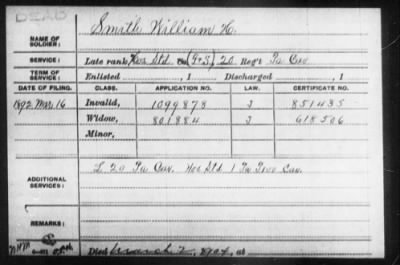 DEAD
NAME OF SOLDIER: Smith William H.
SERVICE: Late rank, Hos Std Co. (F&S), 20 Reg't Pa Cav
TERM OF SERVICE: Enlisted , 1 Discharged , 1
DATE OF FILING. CLASS. APPLICATION NO. LAW. CERTIFICATE NO.
1892 Mar 16 Invalid, 1099878 J 851435
Widow, 801884 J 618506
Minor,
ADDITIONAL SERVICES: L 20 Pa Cav. Hos Std 1 Pa Prov Cav.
REMARKS:
Died March 2, 1904, at